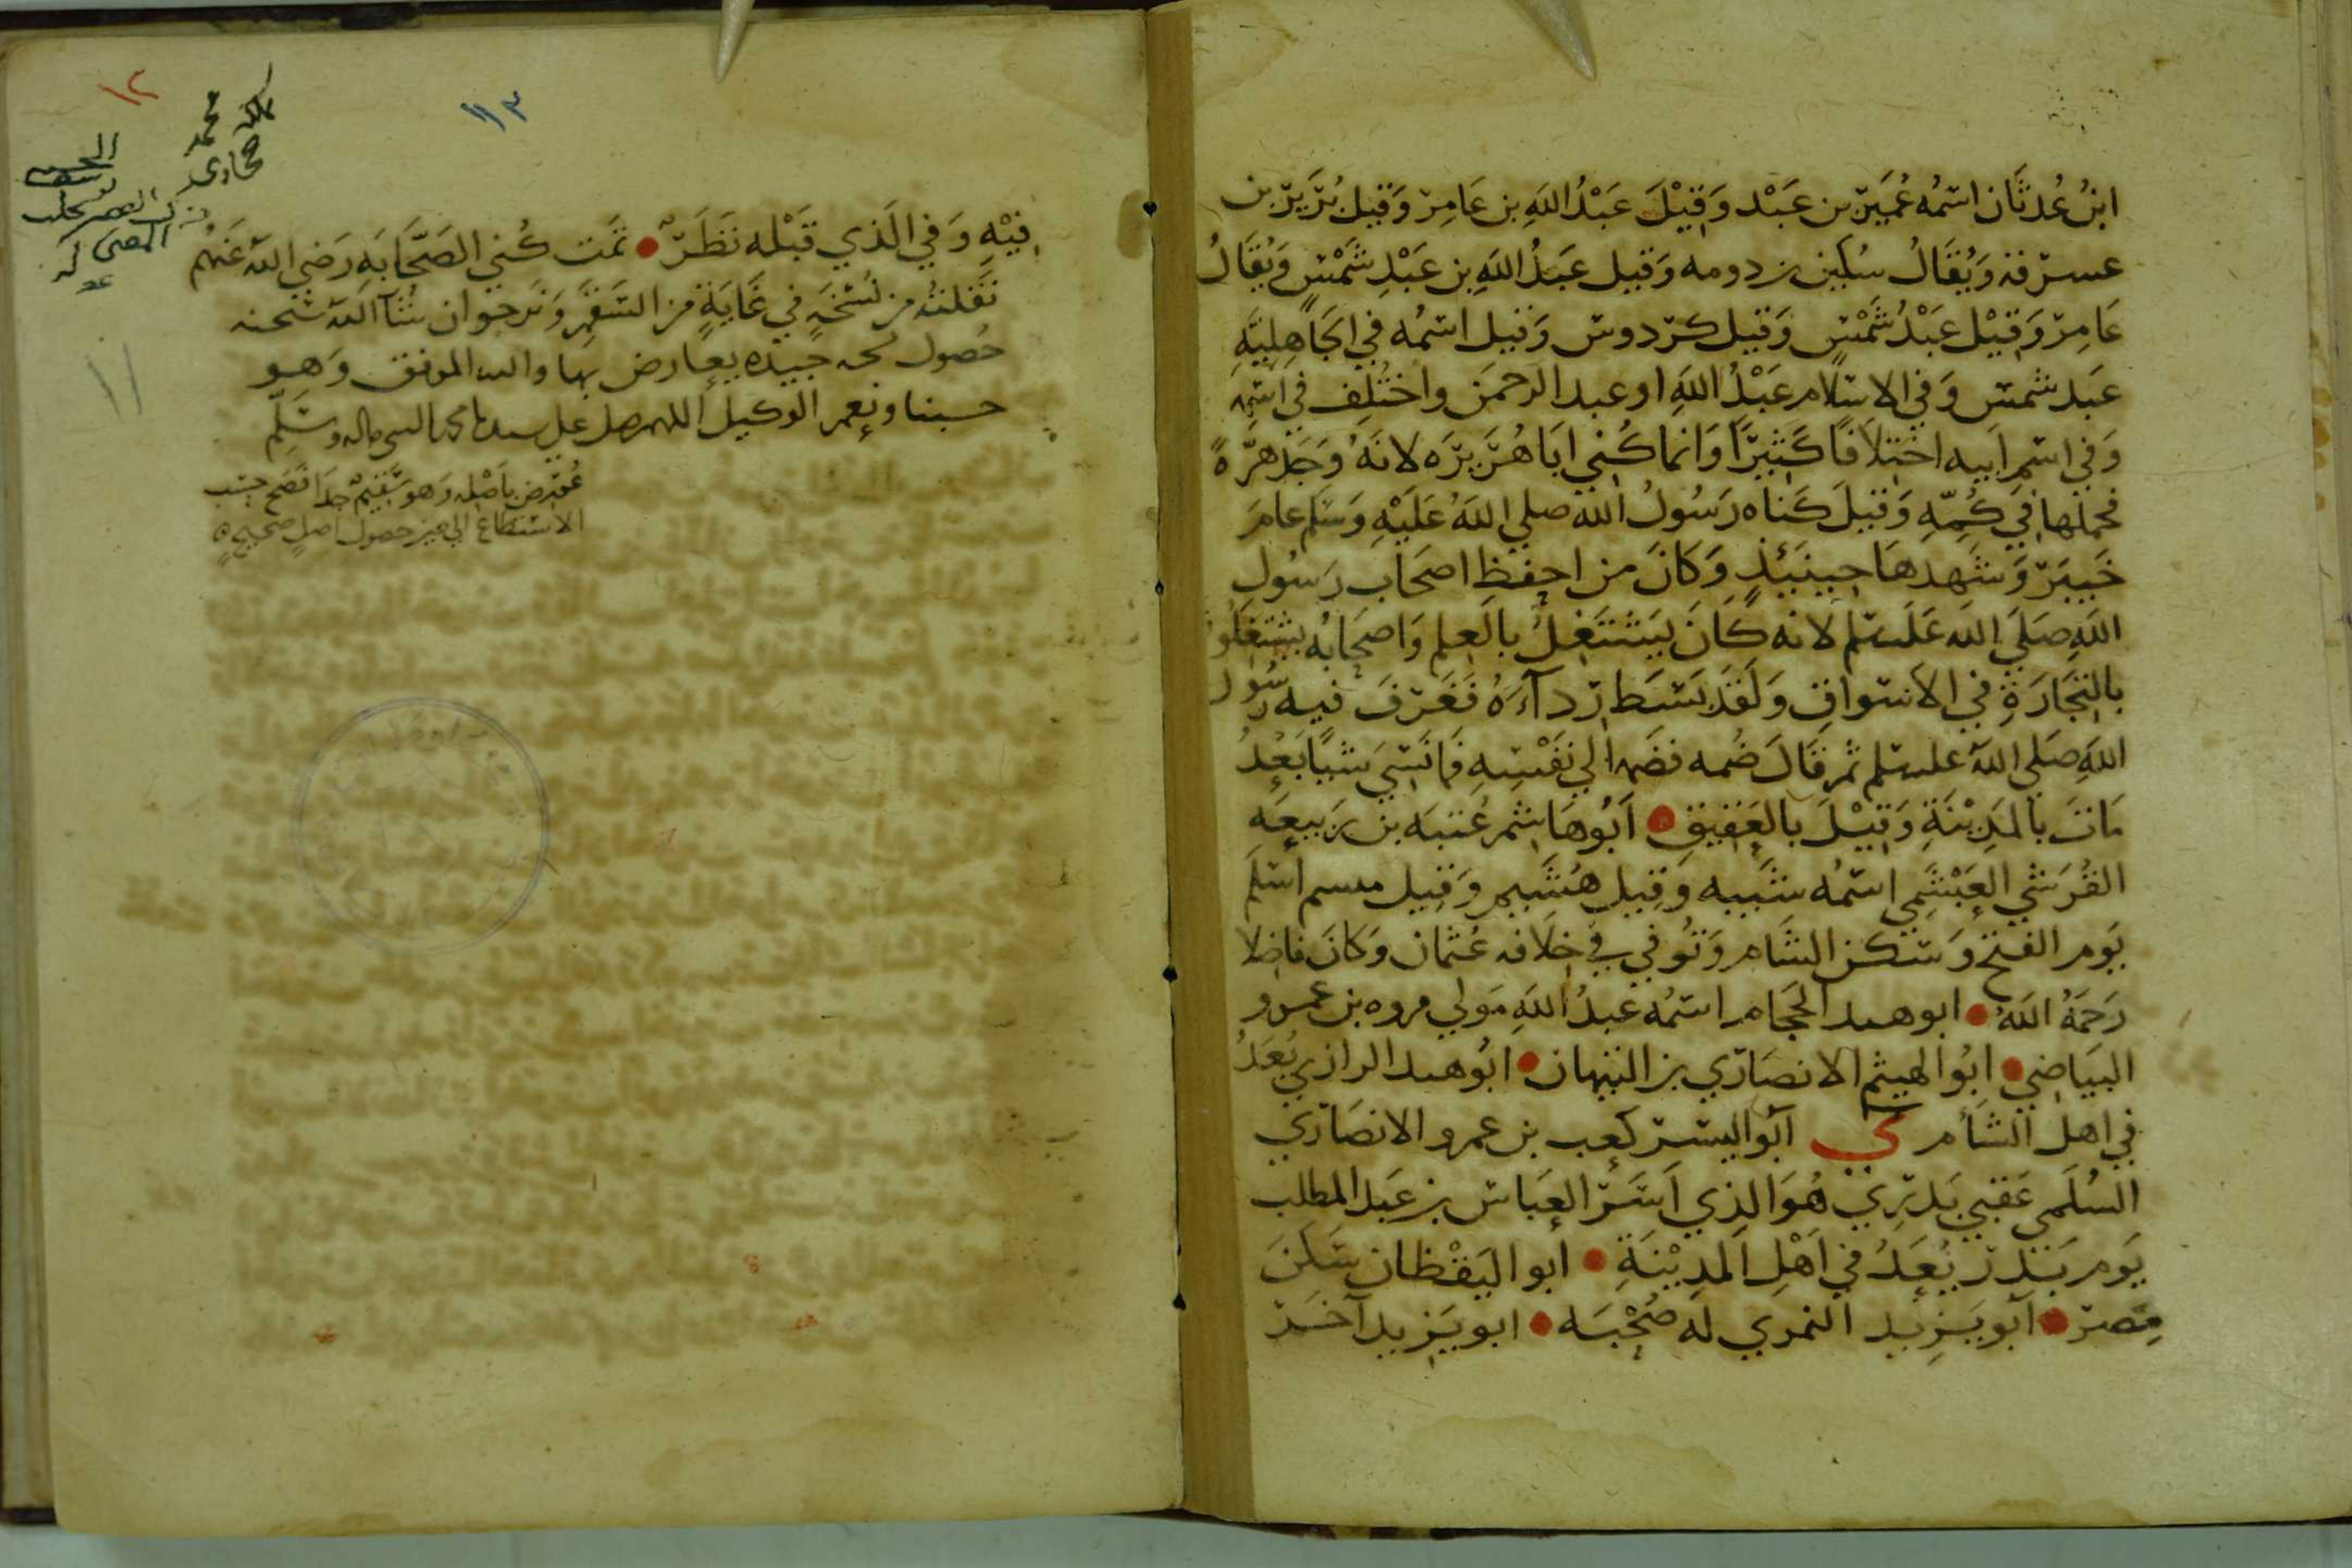 ابنُ عُدثَان اسْمُه عُمَيْرْ بن عَبْد وَقِيْلَ عَبْدُ اللهِ بن عَامِرْ وَقِيلَ بُرَيْرْ بن
عسرْقه وَيُقَالُ سُكَين بن دومه وَقيل عَبْدُ اللهِ بن عَبْدِ شَمْسٍ وَيُقَالُ
عَامِرْ وَقِيْل عَبْدُ شَمْسٍ وَقيل كرْدوس وَقيل اسْمُه في الجَاهِليَّهِ
عَبد شمس وَفي الاسْلام عَبْدُ اللهِ او عبد الرحمَن واختُلِفَ في اسْمِه
وَفي اسْم اَبيه اختِلافًا كَثِيْرًا وَانما كُنِي ابَا هُرَيْرَه لانَهُ وَجَد هِرَّةً
فحملها في كُمّهِ وَقيلَ كَنَاه رَسُولُ الله صلى اللهُ عَلَيْهِ وَسَلم عامَ
خَيبَرْ وَشَهدهَا حِينَئِذٍ وَكَانَ من احفظِ اصحَاب رَسُول
اللهِ صَلَى الله عَلَيسْلم لانه كَانَ يَشْتَغِلُ بالعِلم وَاصحَابُه يشتغلُو
بالتِجَارَةِ في الاسْواقِ وَلَقَدْ بَسَط رِدآءَهُ فَغَرَفَ فيه رسُول
اللهِ صَلى اللهُ عليسْلم ثم قَالَ ضُمه فضَمه الي نَفْسِهِ فمَا نَسِيَ شيًا بَعْدُ
مَاتَ بالمَدِيْنَةِ وَقِيْلَ بالعَقِيقِ • اَبُو هَاشِم عُتبَه بن رَبيعَه
القُرَشي العَبْشَمي اسْمُه شَيبه وَقِيل هُشَيم وَقِيل مهسم اسْلمَ
يَوم الفتح وَسَكن الشَام وَتُوفي في خِلَافه عُثمان وَكَانَ فاضِلا
رَحمَهُ اللهُ • ابو هند الحجَام اسْمُه عَبدُ اللهِ مَولي فروه بن عمرو
البيَاضِي • ابُو الهيثم الانصَارْي بن التيهان • ابُو هند الرازي يُعَدُ
في اهل الشَام ي اَبو اليسَرْ كعب بن عمرو الانصَارْي
السُلَمي عَقبي بَدْري هُوَ الذِي اَسَرْ العبَاسْ بن عَبد المطلب
يَوم بَدْر يُعَدُ في اَهْلِ المدِيْنَةِ • ابو اليَقْظان سَكَنَ
مِصرْ • اَبو يَزيد النمري له صُحْبَه • ابو يَزيد آخَرْ
١٢
١١٣
مالكه محمد
حجازي
١١
فِيْهِ وَفي الَذي قَبْله نَظَرْ • تَمت كُنى الصَحَابَه رَضِي اللهُ عَنهُم
نَقَلتُه من نُسْخَهٍ في غَايَةٍ من السَقمِ وَنَرجوا ان شآ الله شحنه
حُصُول نسخه جيده يعارض بها والله الموفق وَهو
حسبنا ونِعم الوكيل اللهم صل على سيدنا محمد النبي واله وسَلِّم
عُورِض بِاصْلِه وَهو سَقيمٌ جدًا فَصَح حسَب
الاستطاع الي حين حصول اصلٍ صحيحٍ ه